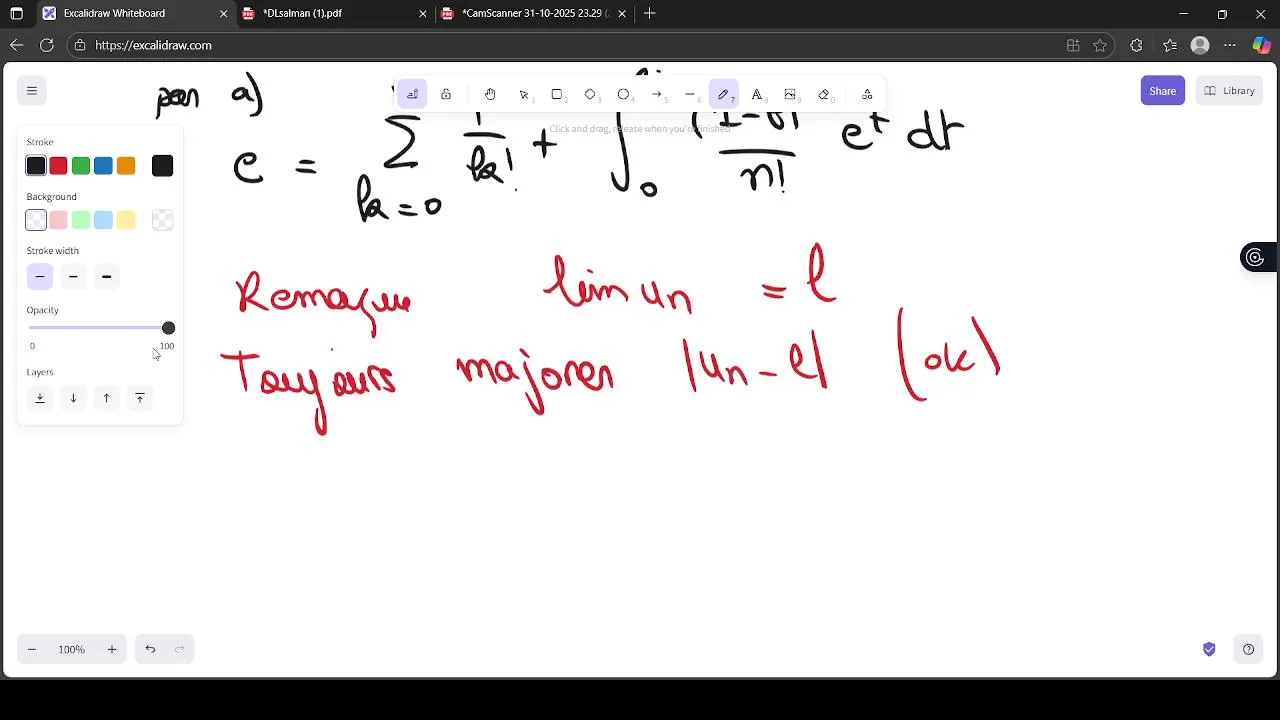 Excalidraw Whiteboard
*DLsalman (1).pdf
*CamScanner 31-10-2025 23.29 (
https://excalidraw.com
Share
Library
Click and drag, release when you're finished
par a)
e = ∑ 1/k! + ∫ e^t dt
k=0
0
n!
Stroke
Background
Stroke width
Opacity
0
100
Layers
Remaque lim un = l
Toujours majorer |un - l| (ok)
100%